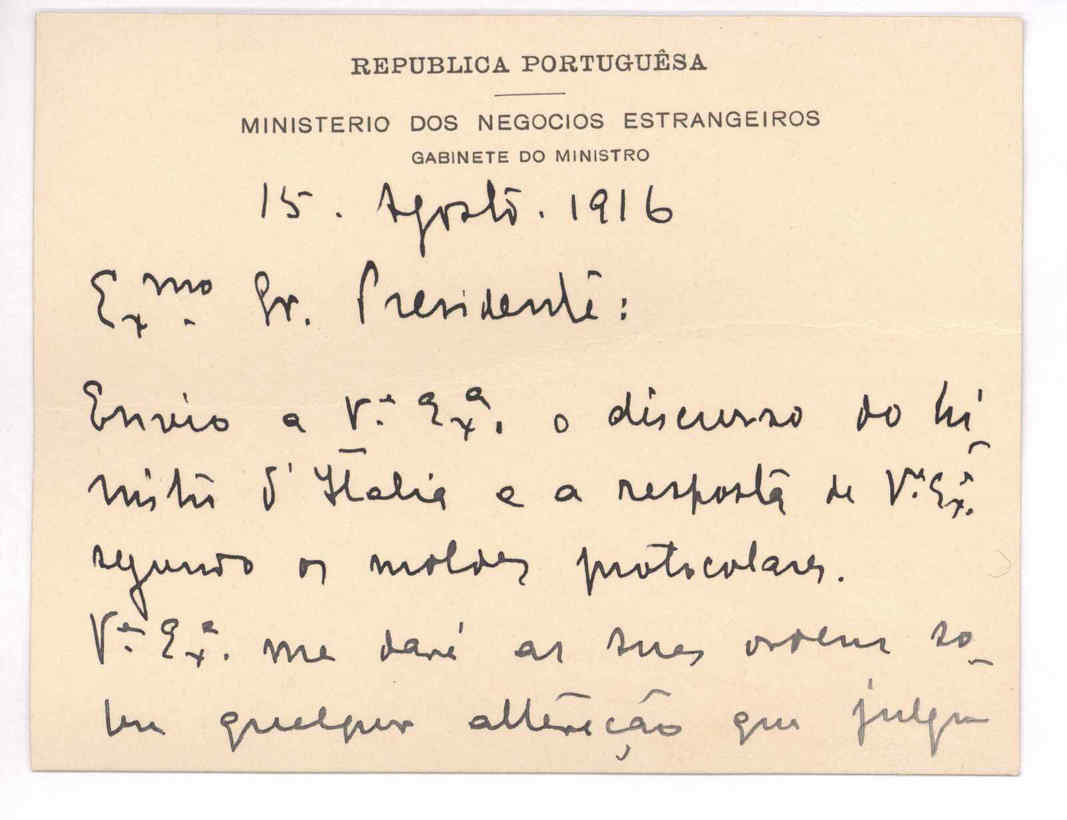 REPUBLICA PORTUGUÊSA
MINISTERIO DOS NEGOCIOS ESTRANGEIROS
GABINETE DO MINISTRO
15. Agosto. 1916
Exmo. Sr. Presidente:
Envio a V.ª Exª. o discurso do Mi
nistro d'Italia e a resposta de V.ª Exª.
segundo os moldes protocolares.
V.ª Exª. me dará as suas ordens so-
bre qualquer alteração que julgue